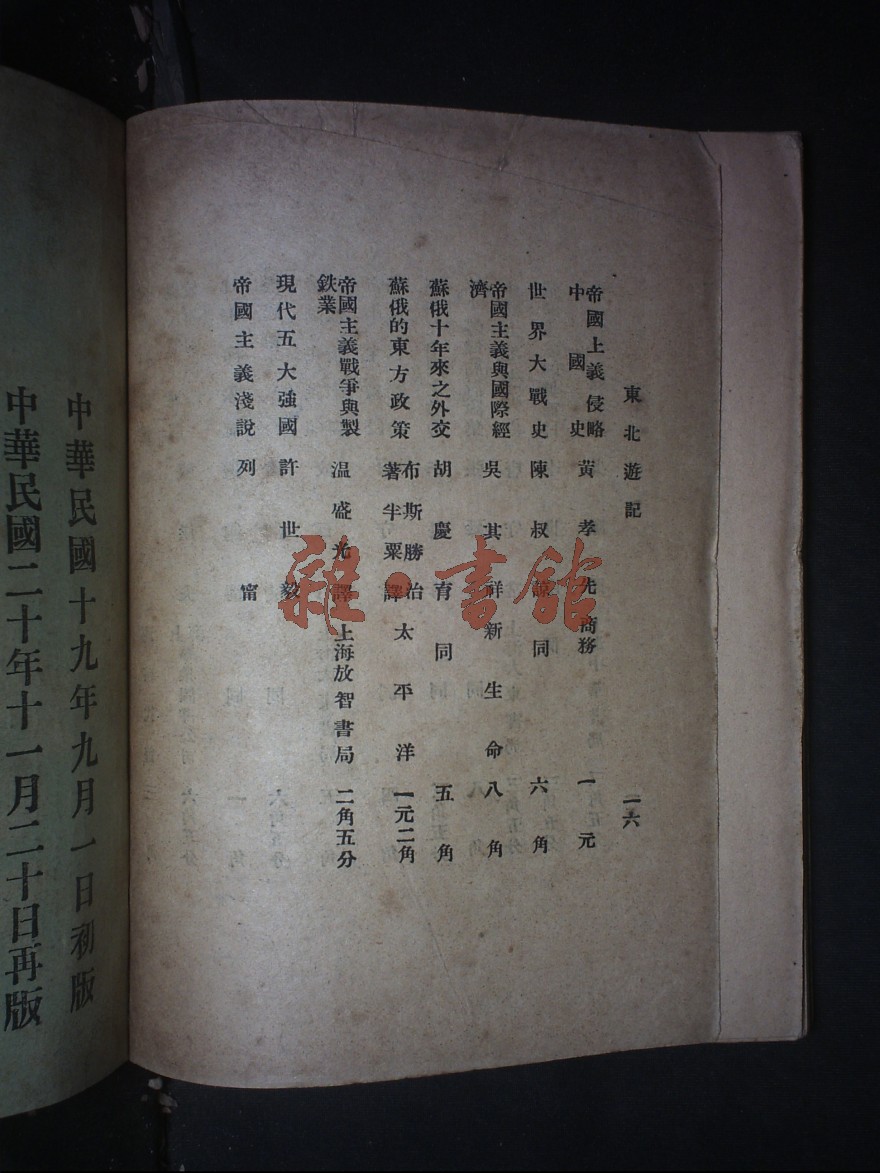 東北遊記 一六
帝國上義侵略中國史 黃孝先 商務 一元
世界大戰史 陳叔諒 同 六角
帝國主義與國際經濟 吳其祥 新生命 八角
蘇俄十年來之外交 胡慶育 同 五角
蘇俄的東方政策 布斯勝治著半粟譯 太平洋 一元二角
帝國主義戰爭與製鉄業 温盛光譯 上海放智書局 二角五分
現代五大強國 許世毅
帝國主義淺說 列甯
中華民國十九年九月一日初版
中華民國二十年十一月二十日再版
雜·書館